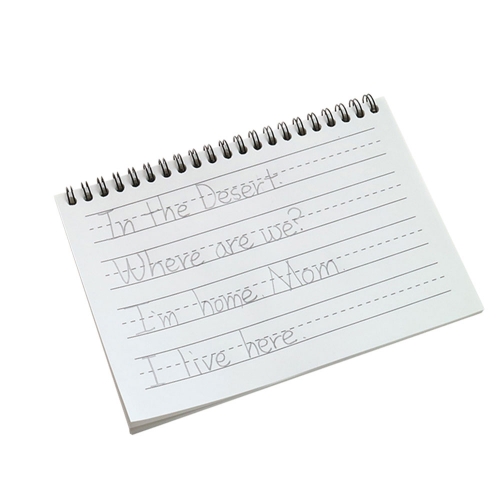 In the Desert.
Where are we?
I'm home. Mom.
I live here.